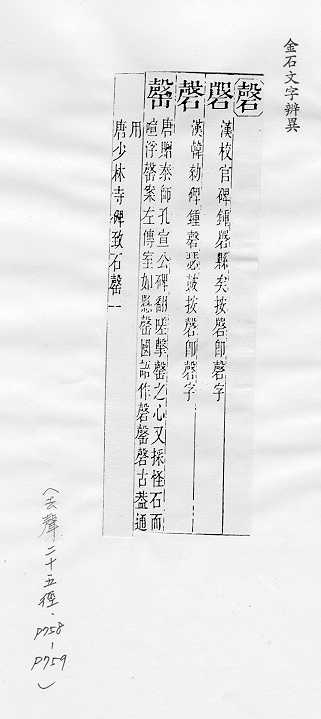 金石文字辨異
磬
漢校官碑鍾磬縣矣按磬即磬字
漢韓勑碑鍾磬瑟鼓按磬即磬字
罄
唐贈泰師孔宣公碑翻嗟擊罄之心又採怪石而
浮罄案左傳室如懸罄國語作磬罄磬古葢通
用
唐少林寺碑致石罄一
(去聲二十五徑·P758-P759)